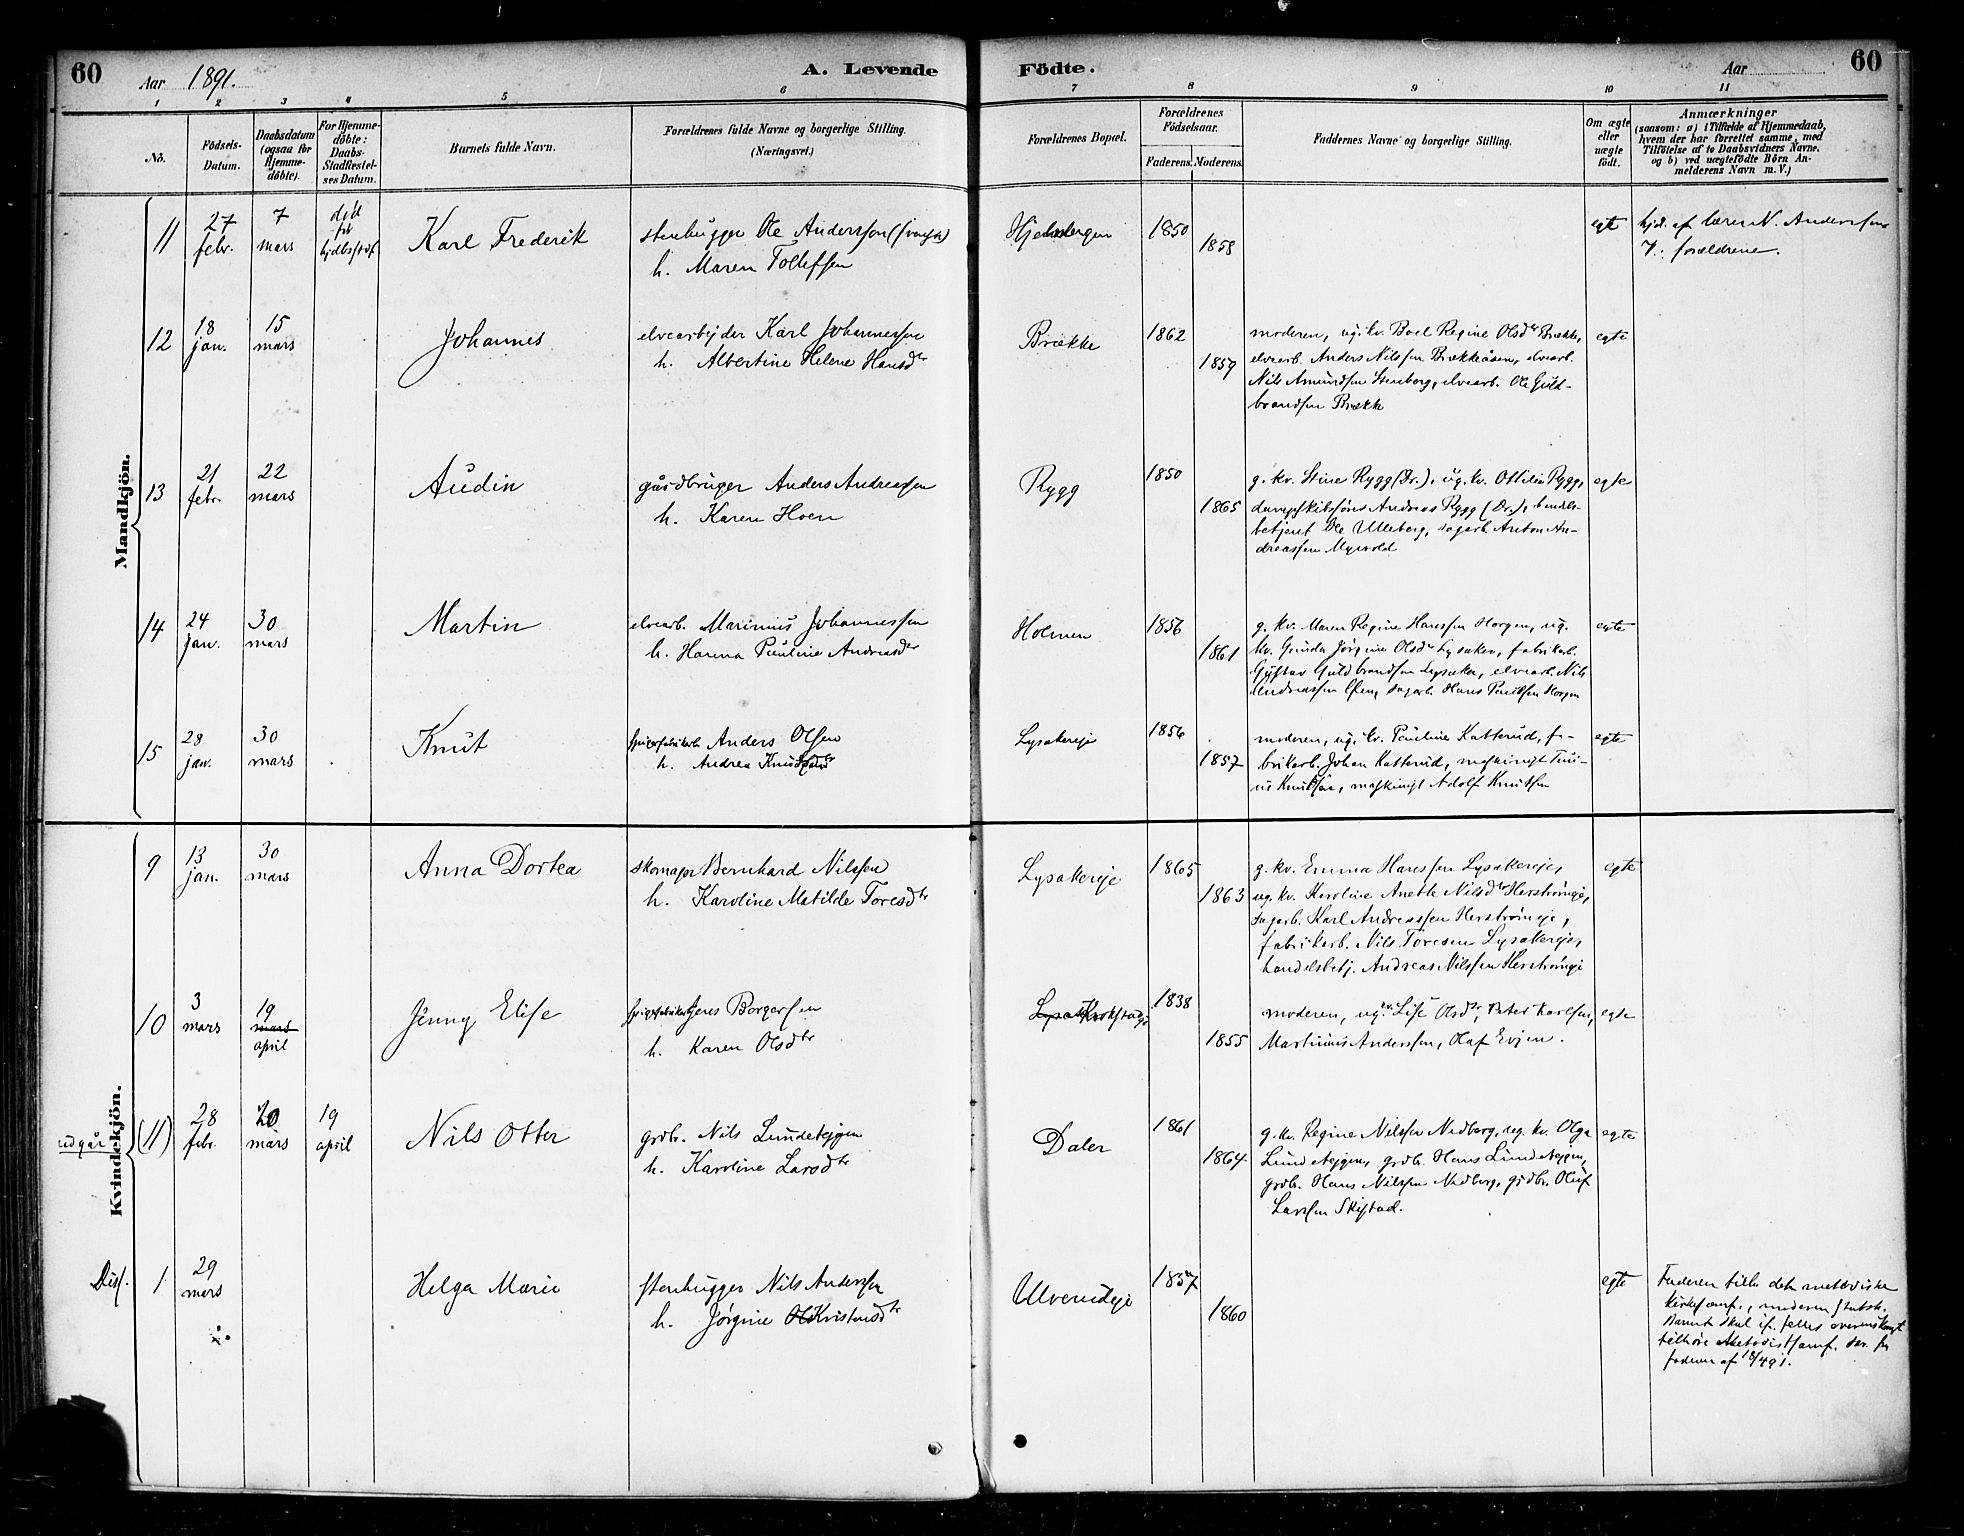 60
Aar 1891.
A. Levende Födte.
Aar
60
1 2 3 4 5 6 7 8 9 10 11
No.
Födsels-Datum.
Daabsdatum (ogsaa for Hjemme-döbte).
For Hjemme-döbte: Daabs-Stadfæstel-ses Datum.
Barnets fulde Navn.
Forældrenes fulde Navne og borgerlige Stilling.
(Næringsvei.)
Forældrenes Bopæl.
Forældrenes Födselsaar.
Faderens. Moderens.
Faddernes Navne og borgerlige Stilling.
Om ægte eller uægte födt.
Anmærkninger
(saasom: a) i Tilfælde af Hjemmedaab,
hvem der har forrettet samme, med
Tilföielse af to Daabsvidners Navne.
og b) ved uægtefödte Börn An-
melderens Navn m. V.)
Mandkjön.
11 27 febr. 7 mars död før Karl Frederik
stenhugger Ole Anderssen
h. Maren Tollefsen
1850 1858 egt
hjd. af lærer N. Anderssen
V.: forældrene.
12 18 jan. 15 mars Johannes
elvearbejder Karl Johannessen
h. Albertine Helene Hansdtr
Brække 1862 1859
moderen, ug. kv. Boel Regine Olsdtr Brække,
elvearb. Anders Nilssen Brækkeåsen, elvearb.
Nils Amundsen Stenborg, elvearb. Ole Guld-
brandsen Brække
egte
13 21 febr. 22 mars Audin
gårdbruger Anders Andreassen
h. Karen Hoen
Rygg 1850 1865
g. kv. Stine Rygg (Dr.), ug. kv. Ottilie Rygg,
Andreas Rygg (Dr.), handels-
betjent Ole Ulleberg, sagarb. Anton An-
dreassen Myrvold
egte
14 24 jan. 30 mars Martin
elvearb. Marinius Johannessen
h. Hanna Pauline Andreasdtr
Holmen 1856 1861
g. kv. Maren Regine Hanssen Horgen, ug.
kv. Gunda Jørgine Olsdtr Lysaker, fabrikarb.
Gustav Guldbrandsen Lysaker, elvearb. Nils
Andreassen, sagarb. Hans Paulsen Horgen
egte
15 28 jan. 30 mars Knut
spigerfabrikarb. Anders Olsen
h. Andrea
Lysakereje 1856 1857
moderen, ug. kv. Pauline Katterud, fa-
brikarb. Johan Katterud, maskinist
Knutsen, maskinist Adolf Knutsen
egte
Kvindekjön.
9 13 jan. 30 mars Anna Dortea
skomager Bernhard Nilssen
h. Karoline Matilde Toresdtr
Lysakereje 1865 1863
g. kv. Emma Hanssen Lysakereje,
ug. kv. Karoline Aneth Nilsdtr Herstrømeje,
sagarb. Karl Andreassen Herstrømeje,
fabrikarb. Nils Toresen Lysakereje,
handelsbetj. Andreas Nilssen Herstrømeje
egte
10 3 mars 19 mars april Jenny Elise
spigerfabrikarb. Jens Borgersen
h. Karen Olsdtr
Krokstadeje 1838 1855
moderen, ug. kv. Lise Olsdtr, Peter Karlsen,
Martinius Anderssen, Olaf Evjen.
egte
udgår (11) 28 febr. 20 mars 19 april Nils Otter
grdbr. Nils Lundeteigen
h. Karoline Larsdtr
Daler 1861 1864
g. kv. Regine Nilssen Nedberg, ug. kv. Olga
Lundeteigen, grdbr. Hans Lundeteigen,
grdbr. Hans Nilssen Nedberg, grdbr. Oluf
Larssen Skistad.
egte
Diss. 1 29 mars Helga Marie
stenhugger Nils Anderssen
h. Jørgine Kristensdtr
Ulverudeje 1857 1860
egte
Faderen tilh. det metodistiske
kirkesamf., moderen statsk.
Barnet skal if. fælles overenskomst
tilhøre Metodistsamf.
faderen af 18/4 91.